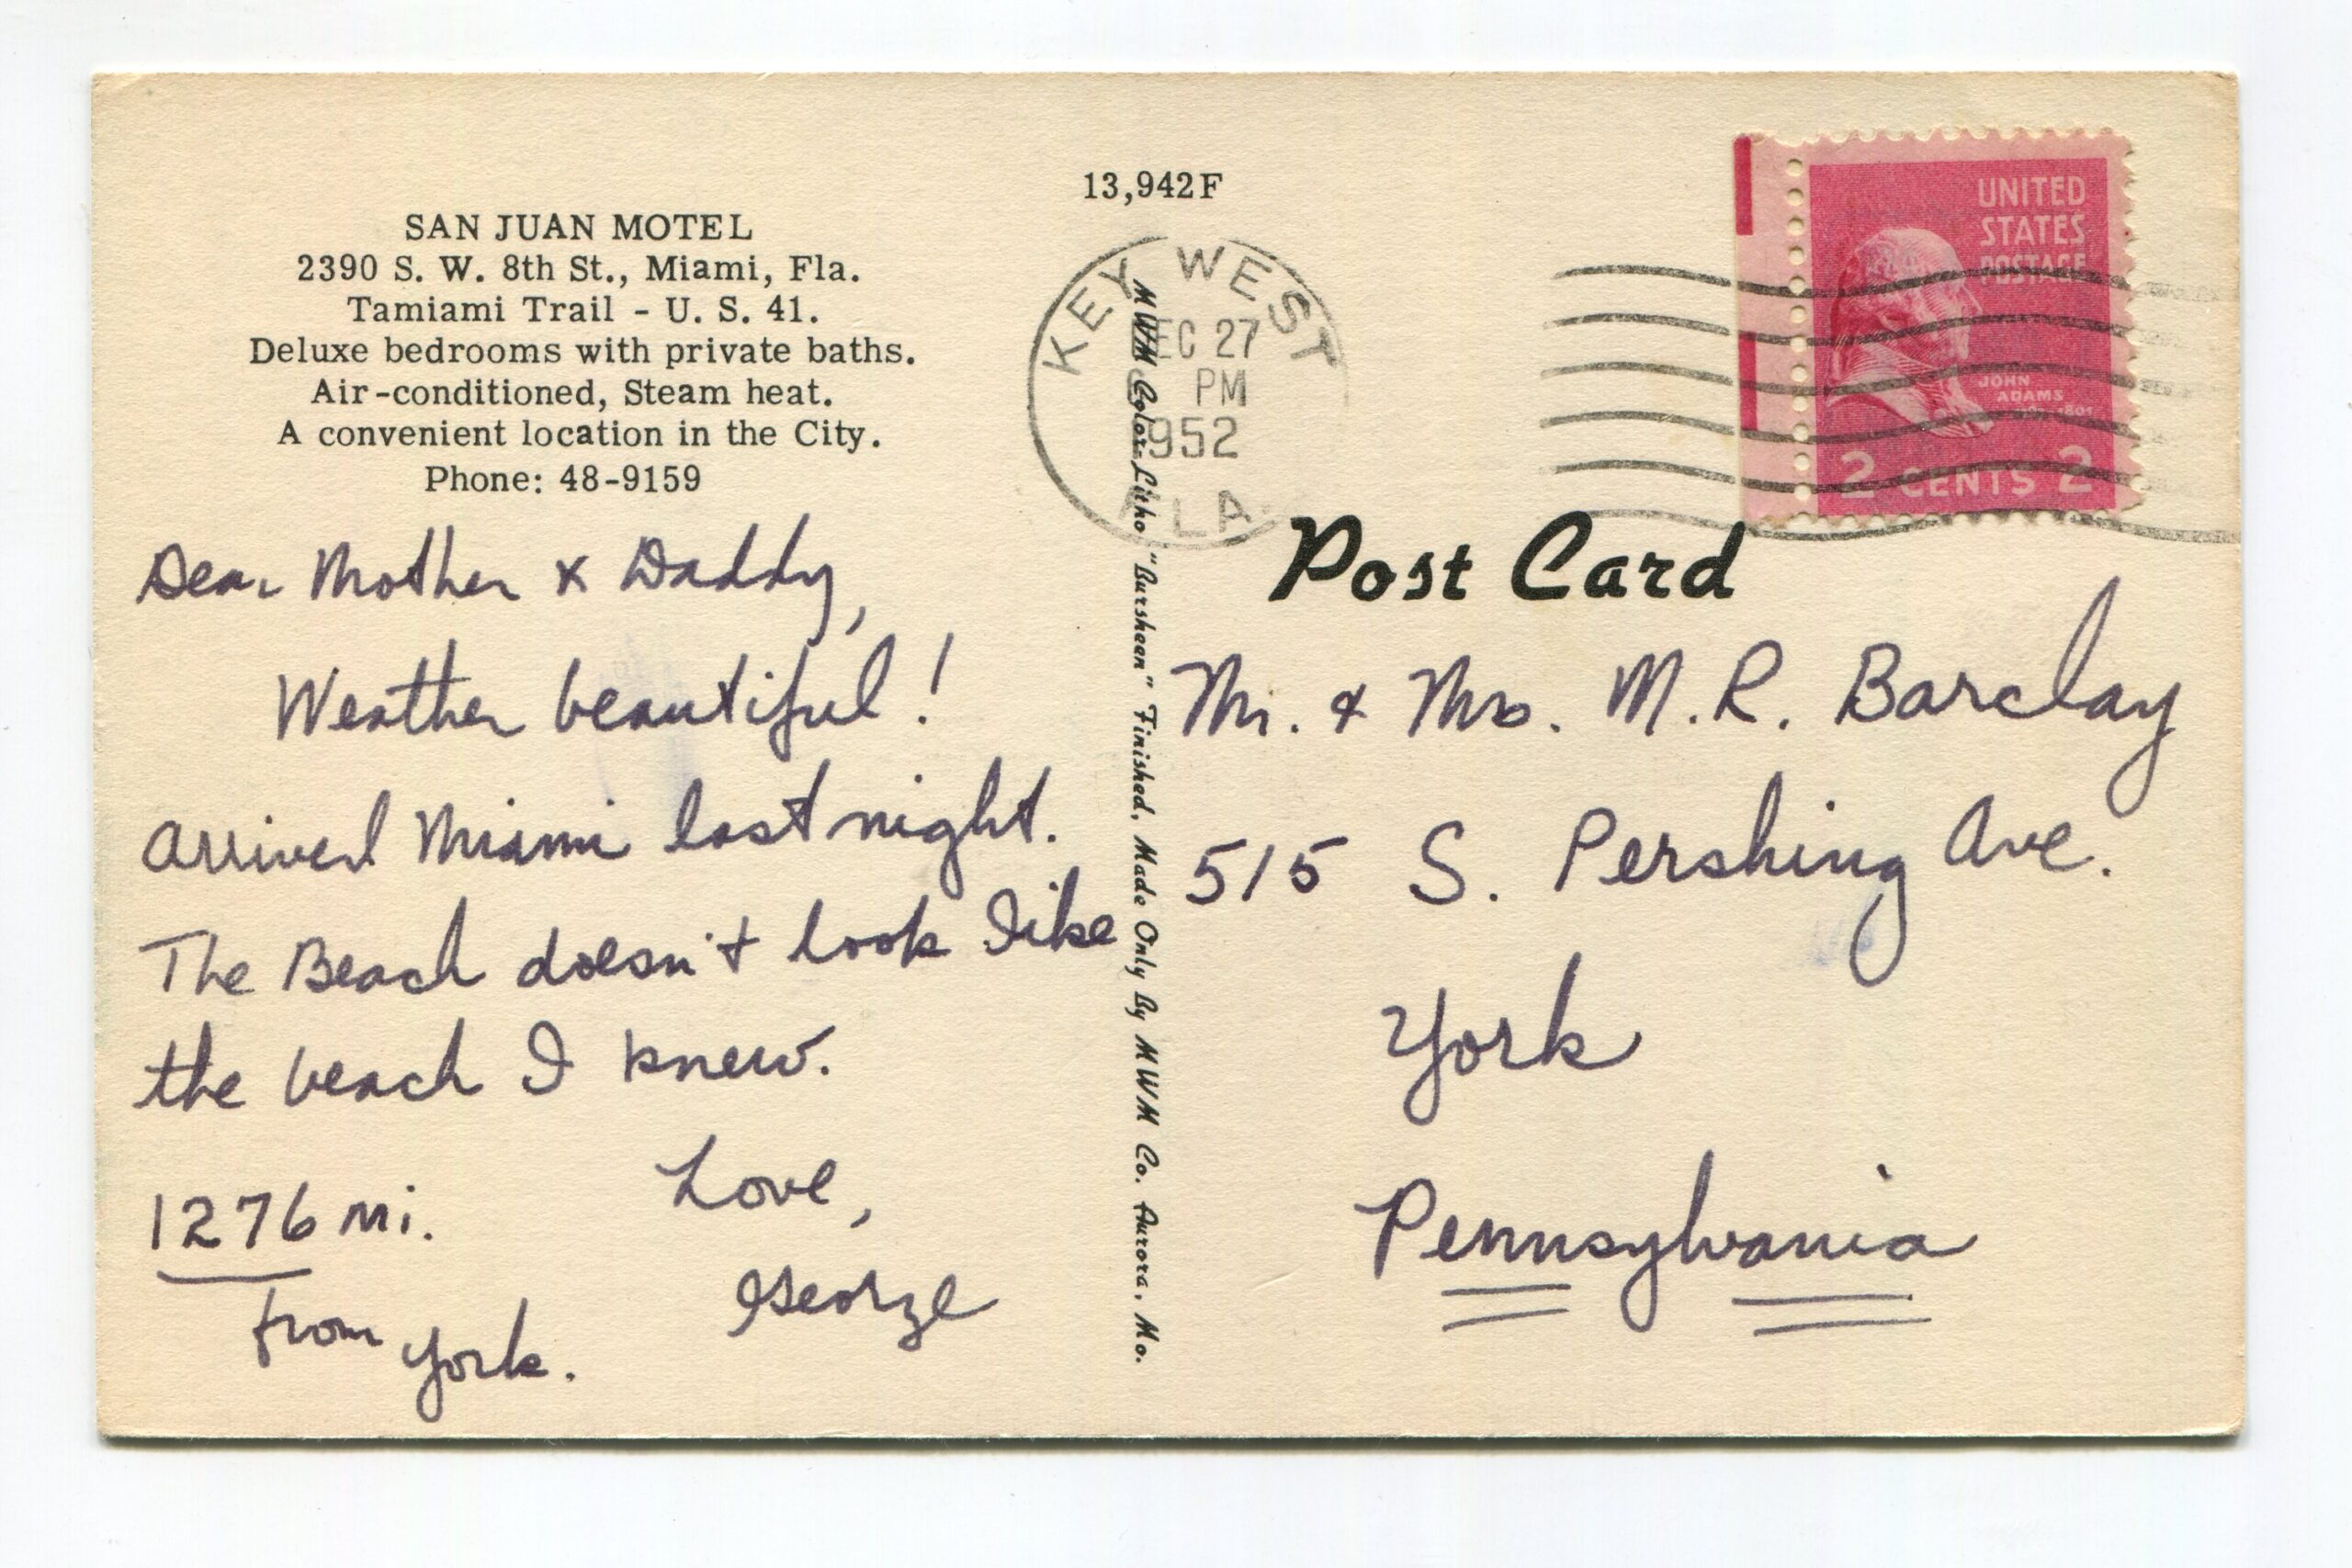 13,942F
SAN JUAN MOTEL
2390 S. W. 8th St., Miami, Fla.
Tamiami Trail - U. S. 41.
Deluxe bedrooms with private baths.
Air-conditioned, Steam heat.
A convenient location in the City.
Phone: 48-9159
Dear Mother & Daddy,
Weather beautiful!
Arrived Miami last night.
The Beach doesn't look like
the beach I knew.
Love,
George
1276 mi.
from York.
MWM Color-Litho, "Bursheen" Finished, Made Only By MWM Co. Aurora, Mo.
KEY WEST
EC 27
PM
1952
FLA.
UNITED
STATES
POSTAGE
JOHN
ADAMS
1801
2 CENTS 2
Post Card
Mr. & Mrs. M.R. Barclay
515 S. Pershing Ave.
York
Pennsylvania